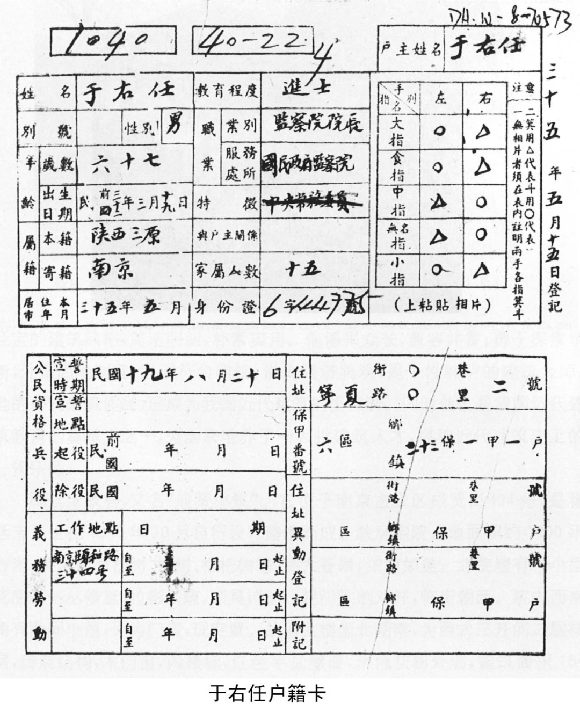 DA.W-8-70573
1040
40-22
4
户主姓名 于右任
姓名 于右任 教育程度 進士
別號 性別 男 職業 業別 監察院院長
年齡 歲數 六十七 服務處所 國民政府監察院
出生日期 民前 年三月十九日 特徵 中央常務委員
屬籍 本籍 陝西三原 與戶主關係
寄籍 南京 家屬人數 十五
居住本市年月 三十五年五月 身份證 6字44378
指名 手別 左 右
大指 ○ △
食指 ○ △
中指 △ ○
無名指 △ ○
小指 ○ △
(上粘貼相片)
注意
二箕用△代表斗用○代表
一無相片者須在表內註明兩手各指箕斗
三十五年五月十五日登記
公民資格 宣誓時期 民國十九年八月二十日
宣誓地點
兵役 起役 民前國 年 月 日
除役 民國 年 月 日
義務勞動 工作地點 日期
南京頤和路三十四号 自至 年 月 日 起止
自至 年 月 日 起止
自至 年 月 日 起止
住址保甲番號 寧夏 街路 ○○ 巷里 二 號
六區 鄉鎮 二十二保一甲 戶
住址異動登記 街路 巷里 號
區 鄉鎮 保 甲 戶
街路 巷里 號
區 鄉鎮 保 甲 戶
附記
于右任户籍卡